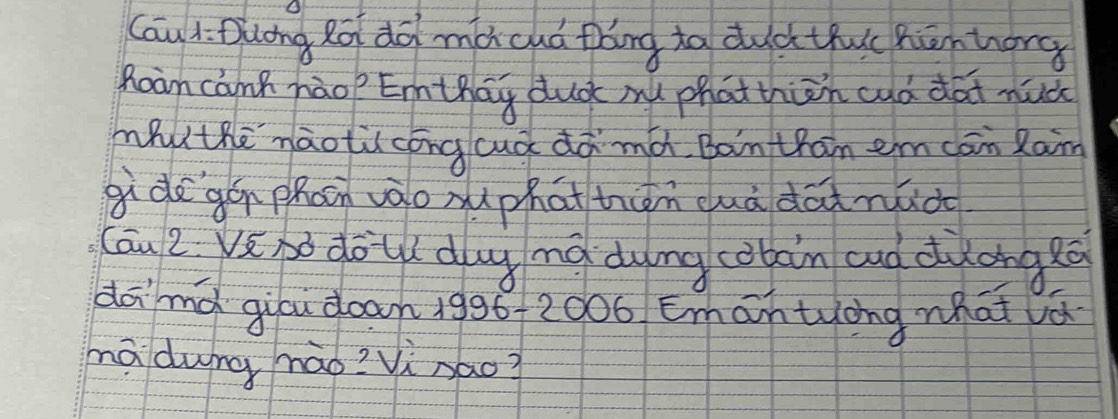 Câu 1: Đường lối đổi mới của Đảng ta được thực hiện trong
hoàn cảnh nào? Em thấy được sự phát triển của đất nước
như thế nào từ công cuộc đổi mới. Bản thân em cần làm
gì để góp phần vào sự phát triển của đất nước
Câu 2: Vẽ sơ đồ tư duy nội dung cơ bản của đường lối
đổi mới giai đoạn 1996-2006. Em ấn tượng nhất với
nội dung nào? Vì sao?